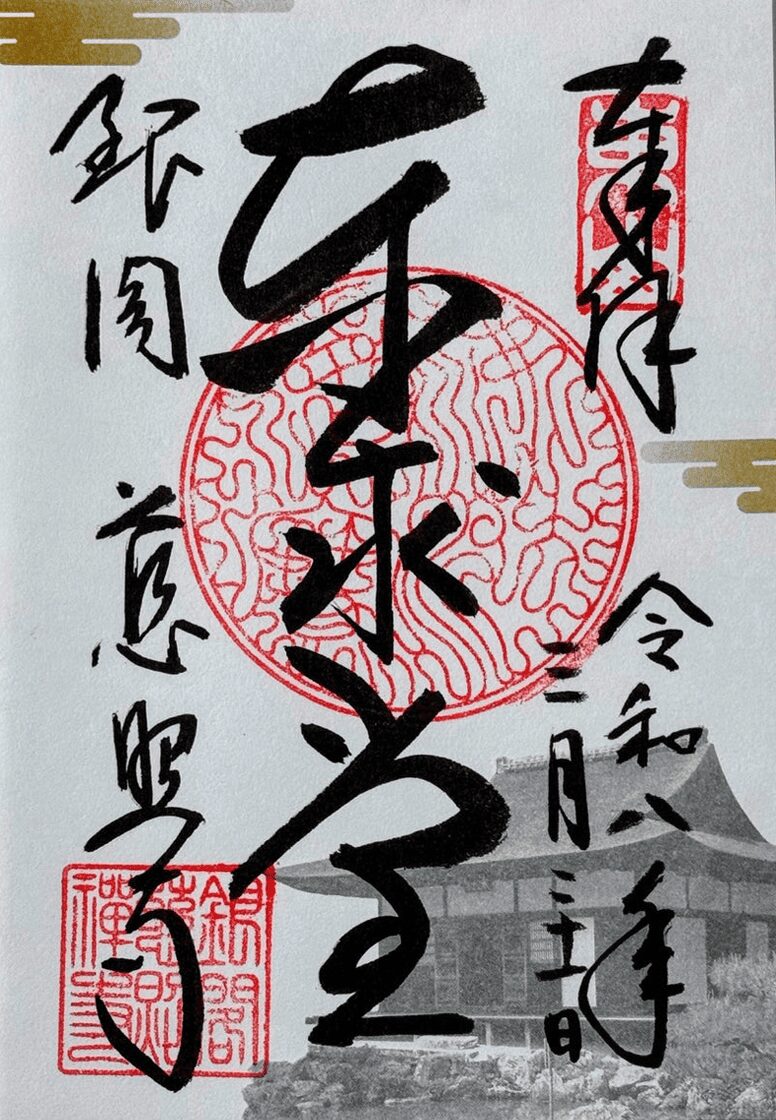 奉拝
令和八年
三月二十一日
東求堂
銀閣 慈照寺
銀閣
慈照
禪寺